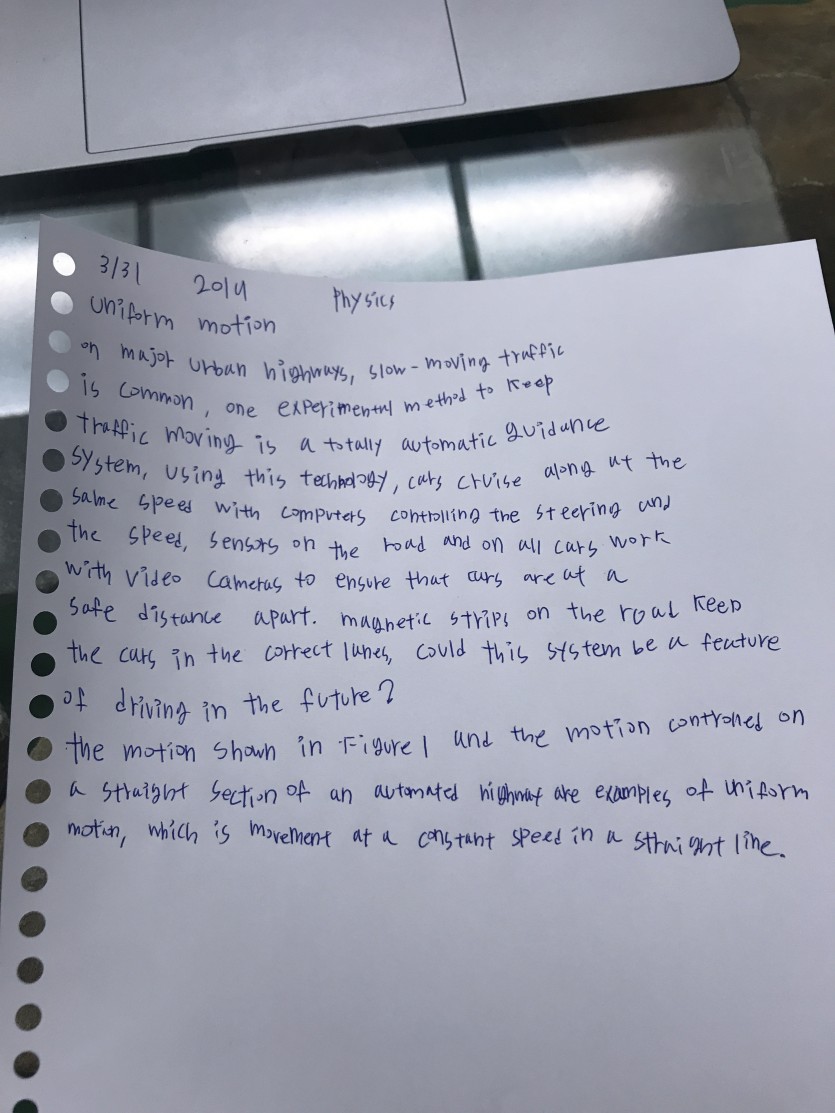 3/31 2019 Physics
uniform motion
on major urban highways, slow-moving traffic
is common, one experimental method to keep
traffic moving is a totally automatic guidance
system, using this technology, cars cruise along at the
same speed with computers controlling the steering and
the speed, sensors on the road and on all cars work
with video cameras to ensure that cars are at a
safe distance apart. magnetic strips on the road keep
the cars in the correct lanes, could this system be a feature
of driving in the future?
the motion shown in Figure 1 and the motion controlled on
a straight section of an automated highway are examples of uniform
motion, which is movement at a constant speed in a straight line.